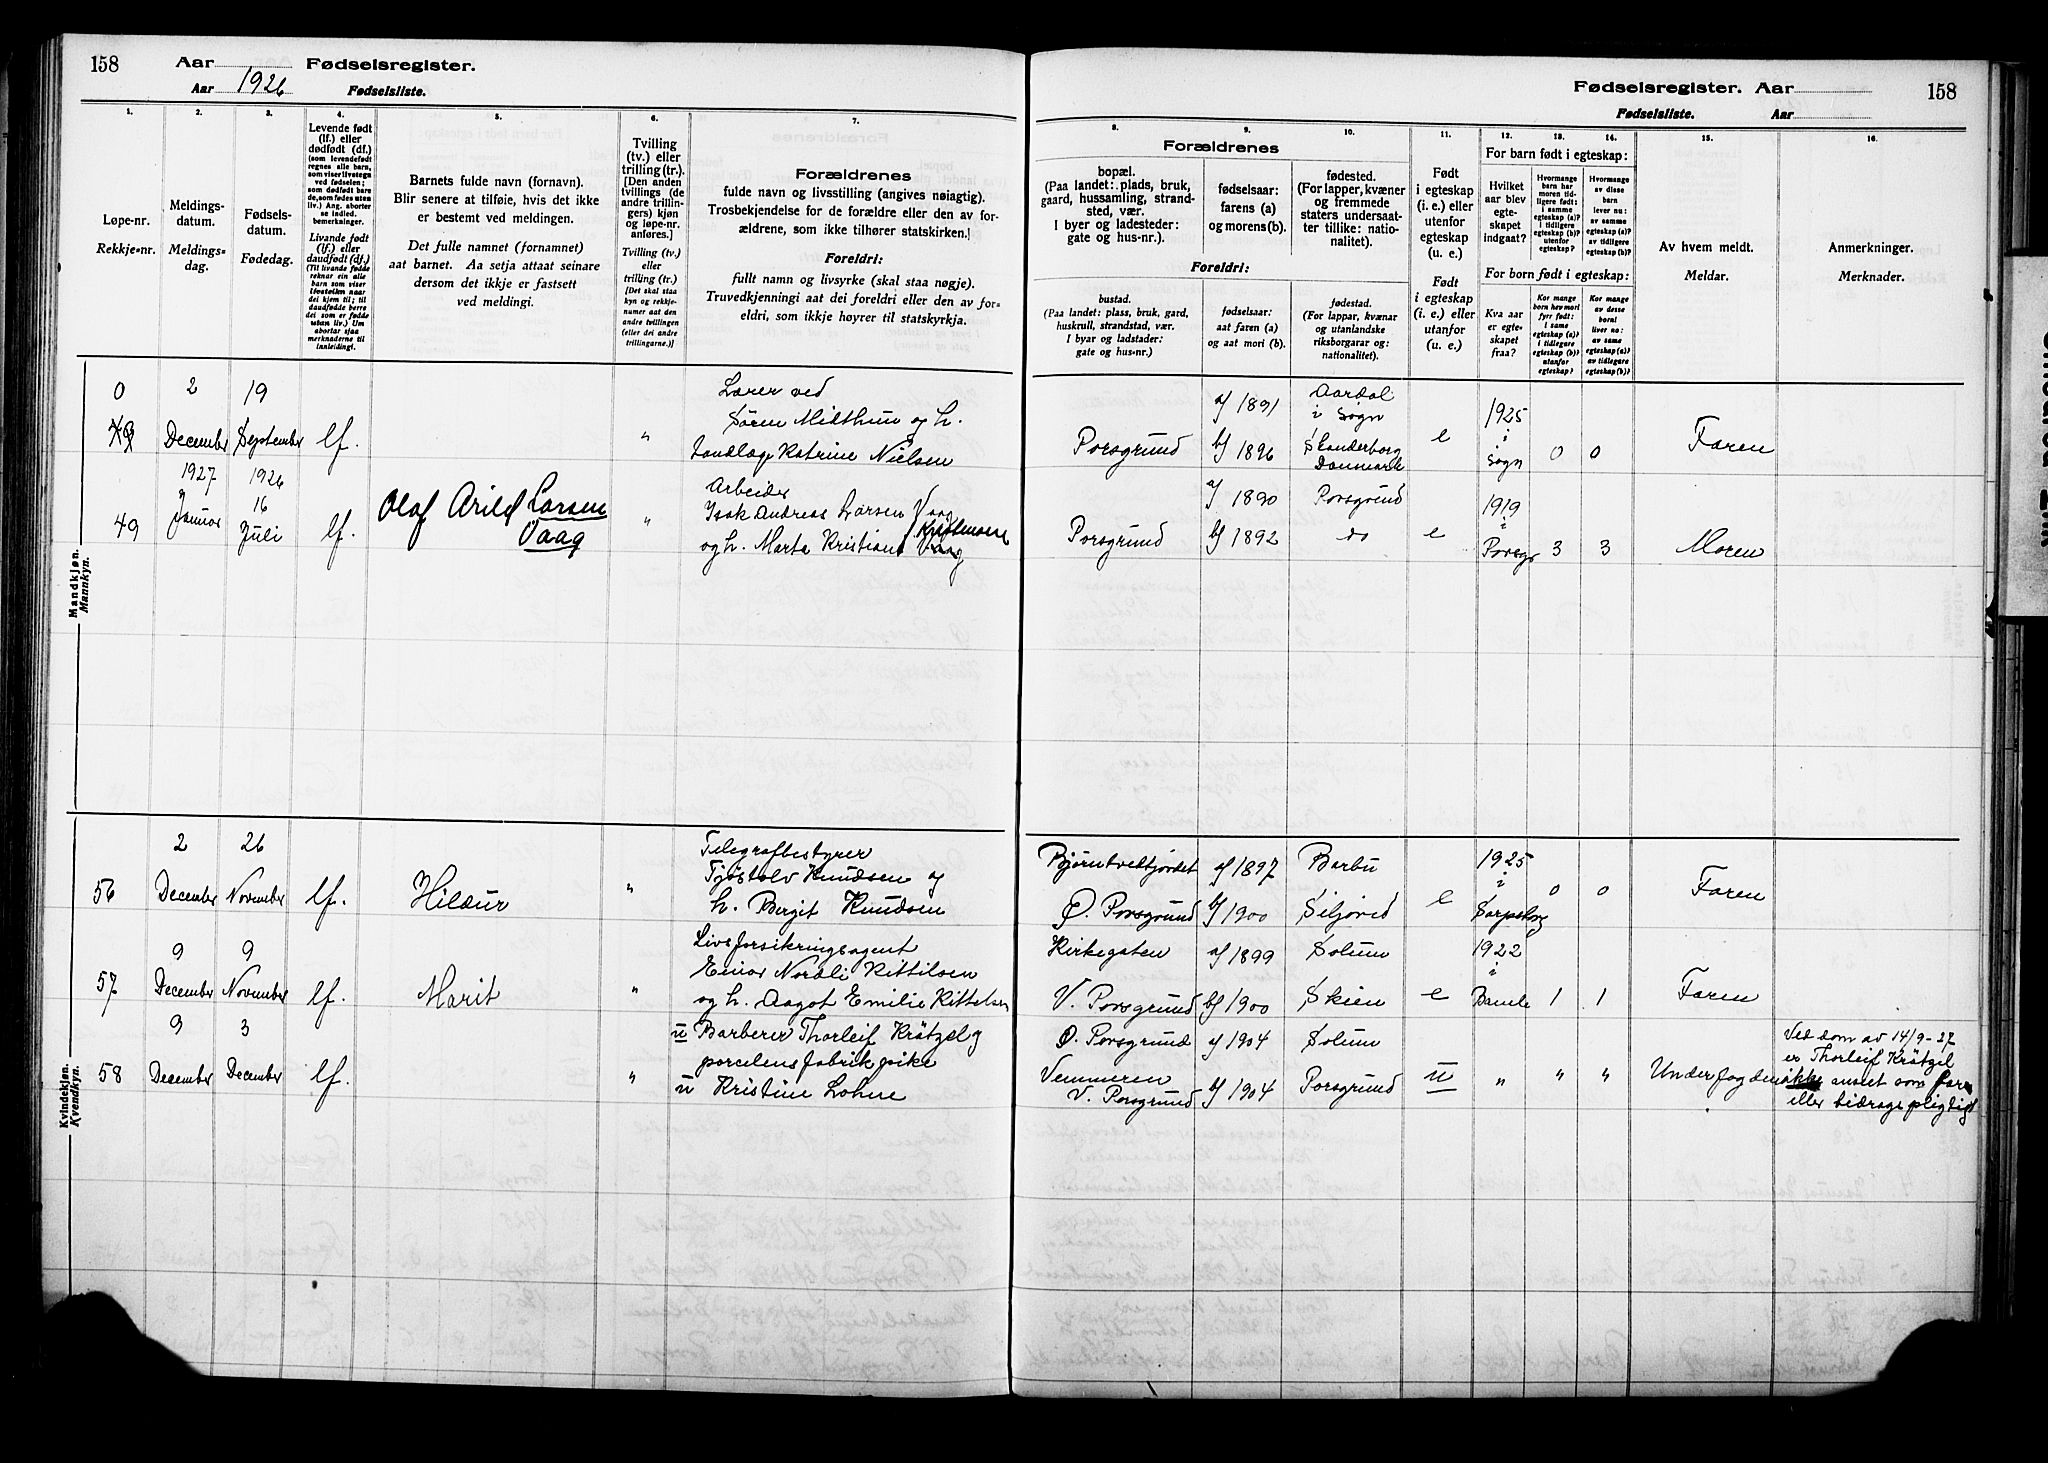 158
Aar
Fødselsregister.
Aar 1926
Fødselsliste.
1.
2.
3.
4.
5.
6.
7.
Løpe-nr.
Rekkje-nr.
Meldings-
datum.
Meldings-
dag.
Fødsels-
datum.
Fødedag.
Levende født
(lf.) eller
dødfødt (df.)
(som levendefødt
regnes alle barn,
som viser livstegn
ved fødselen;
som dødfødt bare
de, som fødes uten
liv.) Ang. aborter
se indled.
bemerkninger.
Livande født
(lf.) eller
daudfødt (df.)
Barnets fulde navn (fornavn).
Blir senere at tilføie, hvis det ikke
er bestemt ved meldingen.
Det fulle namnet (fornamnet)
aat barnet. Aa setja attaat seinare
dersom det ikkje er fastsett
ved meldingi.
Tvilling
(tv.) eller
trilling (tr.).
[Den anden
tvillings (de
andre trillin-
gers) kjøn
og løpe-nr.
anføres.]
Tvilling (tv.)
eller
trilling (tr.)
[Det skal staa
kyn og rekkje-
numer aat den
andre tvillingen
(eller dei andre
trillingarne.)]
Forældrenes
fulde navn og livsstilling (angives nøiagtig).
Trosbekjendelse for de forældre eller den av for-
ældrene, som ikke tilhører statskirken.
Foreldri:
fullt namn og livsyrke (skal staa nøgje).
Truvedkjenningi aat dei foreldri eller den av for-
eldri, som ikkje høyrer til statskyrkja.
Mandkjøn.
Mannkyn.
0
2
December
19
September
lf.
"
Lærer ved
Søren Midthun og h.
Katrine Nielsen
49
1927
Januar
1926
16
Juli
lf.
Olaf Arild Larsen
Vaag
"
Arbeider
Isak Andreas Larsen Vaag
og h. Marta Kristians
Kvindekjøn.
Kvendkyn.
56
2
December
26
November
lf.
Hildur
"
Telegrafbestyrer
Tjøstolv Knudsen og
h. Bergit Knudsen
57
9
December
9
November
lf.
Marit
"
Livsforsikringsagent
Einar Nordli Kittilsen
og h. Aagot Emilie Kittelsen
58
9
December
3
December
lf.
"
u Barberer Thorleif Krätzel og
porcelensfabrikpike
u Kristine Lohne
Fødselsregister. Aar
158
Fødselsliste.
Aar
8.
9.
10.
11.
12.
13.
14.
15.
16.
Forældrenes
bopæl.
(Paa landet: plads, bruk,
gaard, hussamling, strand-
sted, vær.
I byer og ladesteder:
gate og hus-nr.).
fødselsaar:
farens (a)
og morens (b).
fødested.
(For lapper, kvæner
og fremmede
staters undersaat-
ter tillike: natio-
nalitet).
Foreldri:
bustad.
(Paa landet: plass, bruk, gard,
huskrull, strandstad, vær.
I byar og ladstader:
gate og hus-nr.)
fødselsaar:
aat faren (a)
og aat mori (b).
fødestad.
(For lappar, kvænar
og utanlandske
riksborgarar og:
nationalitet).
Født
i egteskap
(i. e.) eller
utenfor
egteskap
(u. e.)
Født
i egteskap
(i. e.) eller
utanfor
egteskap
(u. e.).
For barn født i egteskap:
Hvilket
aar blev
egte-
skapet
indgaat?
Hvormange
barn har
moren tid-
ligere født:
i samme
egteskap (a)?
i tidligere
egteskap (b)?
utenfor
egteskap?
Hvormange
av disse
barn
lever nu:
av samme
egteskap (a)?
av tidligere
egteskap (b)?
For born født i egteskap:
Kva aar
er egte-
skapet
fraa?
Kor mange
born hev mori
fyrr født:
i same
egteskap (a)?
i tidlegare
egteskap (b)?
utanfor
egteskap?
Kor mange
av desse
borni
liver no:
av same
egteskap (a)?
av tidlegare
egteskap (b)?
Av hvem meldt.
Meldar.
Anmerkninger.
Merknader.
Porsgrund
a/ 1891
b/ 1896
Aardal
i Sogn
Skanderborg
Danmark
e
1925
i
Sogn
0
0
Faren
Porsgrund
a/ 1890
b/ 1892
Porsgrund
do
e
1919
i
Porsgr
3
3
Moren
Bjørntvedtjordet
Ø. Porsgrund
a/ 1897
b/ 1900
Barbu
Siljord
e
1925
i
Sarpsborg
0
0
Faren
Kirkegaten
V. Porsgrund
a/ 1899
b/ 1900
Solum
Skien
e
1922
i
Bamle
1
1
Faren
Ø. Porsgrund
Vemmeren
V. Porsgrund
a/ 1904
b/ 1904
Solum
Porsgrund
u
"
"
"
Underfogden
Ved dom av 14/9-27
er Thorleif Krätzel
ikke anset som far
eller bidragspligtig